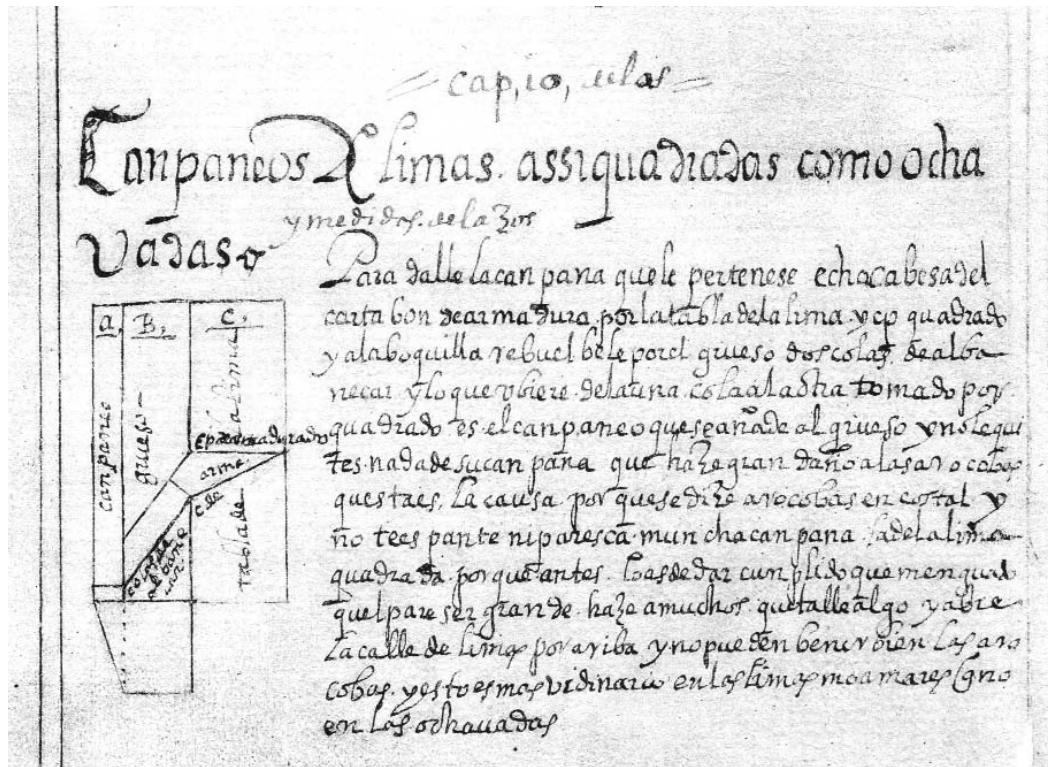 = cap, 10, de las =
Canpaneos De limas. assi quadradas como ocha
y medidas. de lazos
vadas
Para dalle la canpana que le pertenese echa cabesa del
cartabon de armadura. por la tabla de la lima y
quadrado
y a la boquilla rebuelbele por el grueso dos colas, de alba
necar y lo que ubiere de la una cola a la otra tomado por
quadrado es el canpaneo que se añade al grueso y no le qui
tes nada de su canpana que haze gran daño a las arocobas
ques tres. la causa por que se dize arocobas en costal y
no te espante ni paresca muncha canpana. la de la lima
quadrada. porque antes. las de dar cunplido que menguado
quel pareser grande. haze a muchos. que talle algo y abre
la calle de limas por ariba y no pueden benir bien las aro
cobas. y esto es mas ordinario en las limas moamares
en las ochavadas
a,
B,
C,
canpaneo
grueso
la lima
arma
c de
cola de
albane
car
tabla de